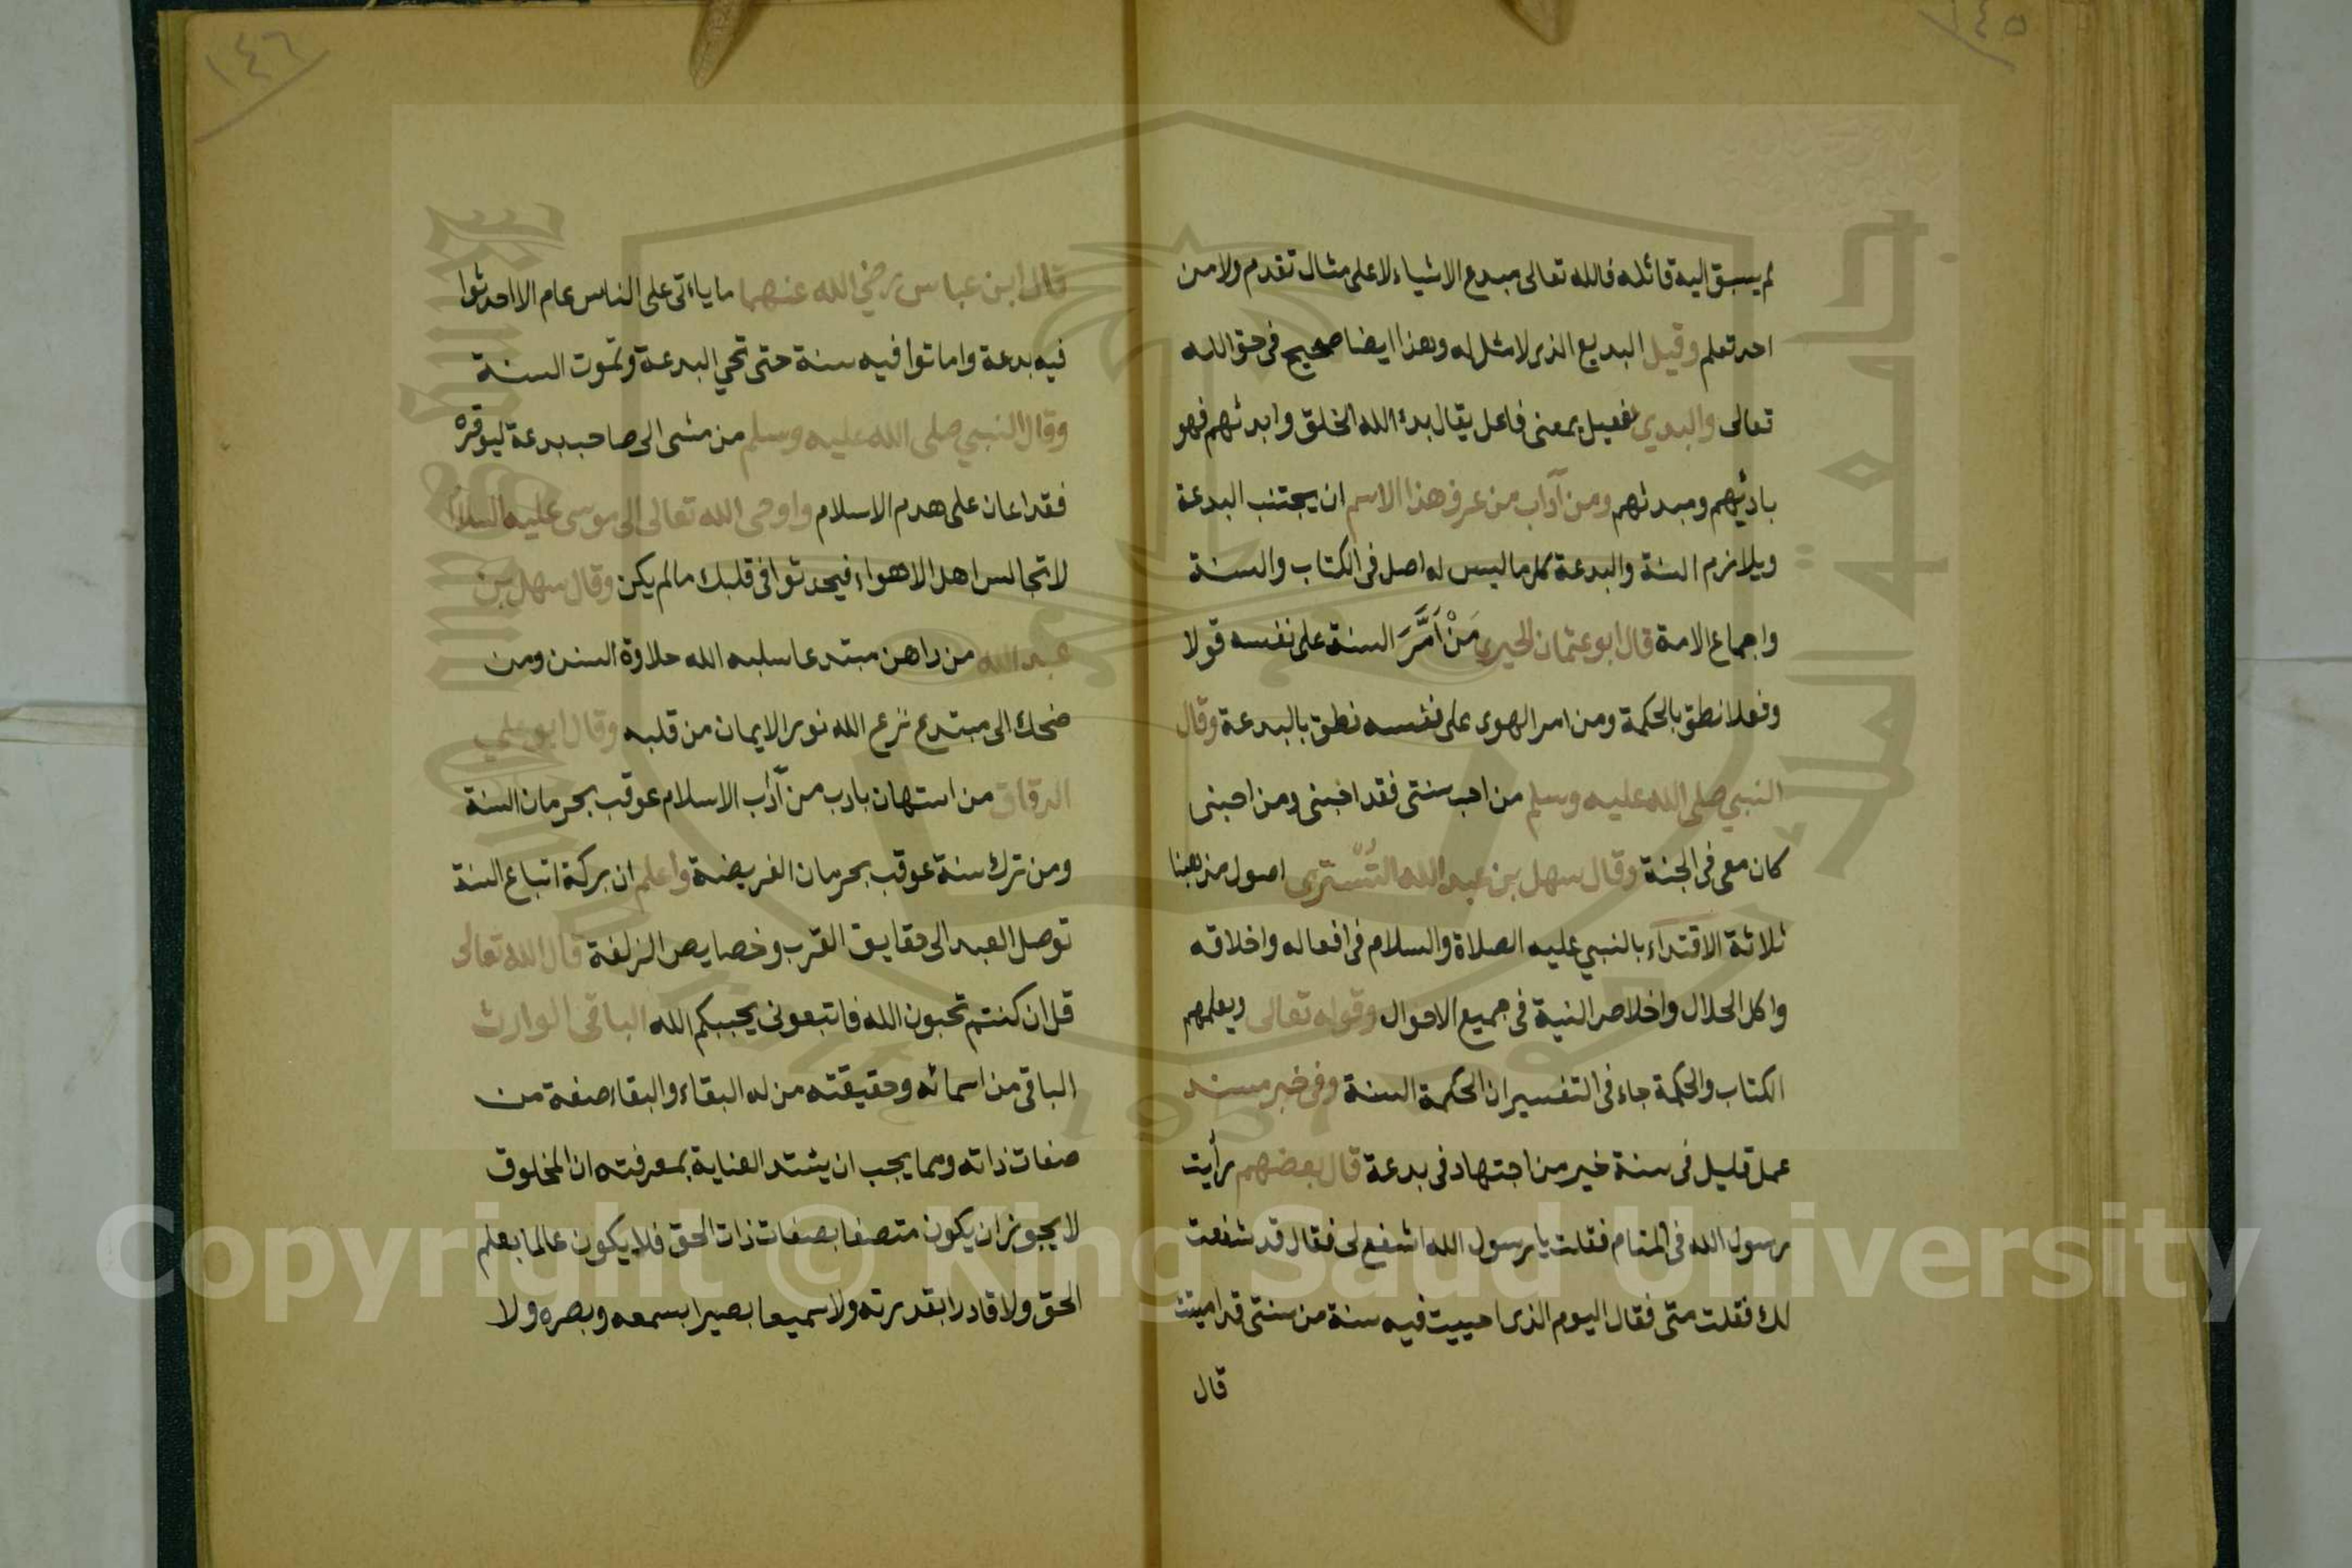 ١٤٥
لم يسبق اليه قائله فالله تعالى مبدع الاشياء لا على مثال تقدم ولا من
احد تعلم وقيل البديع الذى لا مثل له وهذا ايضا صحيح فى حق الله
تعالى والبدئ فعيل بمعنى فاعل يقال بدء الله الخلق وابدئهم فهو
بادئهم ومبدئهم ومن آداب من عرف هذا الاسم ان يجتنب البدعة
ويلازم السنة والبدعة كل ما ليس له اصل فى الكتاب والسنة
واجماع الامة قال ابو عثمان الحيرى مَنْ اَمَّرَ السنة على نفسه قولا
وفعلا نطق بالحكمة ومن امر الهوى على نفسه نطق بالبدعة وقال
النبي صلى الله عليه وسلم من احب سنتى فقد احبنى ومن احبنى
كان معى فى الجنة وقال سهل بن عبد الله التُسْترى اصول مذهبنا
ثلاثة الاقتداء بالنبي عليه الصلاة والسلام فى افعاله واخلاقه
واكل الحلال واخلاص النية فى جميع الاحوال وقوله تعالى ويعلمهم
الكتاب والحكمة جاء فى التفسير ان الحكمة السنة وفى خبر مسند
عمل قليل فى سنة خير من اجتهاد فى بدعة قال بعضهم رأيت
رسول الله فى المنام فقلت يا رسول الله اشفع لى فقال قد شفعت
لك فقلت متى فقال اليوم الذى احييت فيه سنة من سنتى قد اميتت
قال
١٤٦
قال ابن عباس رضي الله عنهما ما ياءتى على الناس عام الا احدثوا
فيه بدعة واماتوا فيه سنة حتى تحي البدعة وتموت السنة
وقال النبي صلى الله عليه وسلم من مشى الى صاحب بدعة ليوقره
فقد اعان على هدم الاسلام واوحى الله تعالى الى موسى عليه السلام
لا تجالس اهل الاهواء فيحدثوا فى قلبك ما لم يكن وقال سهل بن
عبد الله من داهن مبتدعا سلبه الله حلاوة السنن ومن
ضحك الى مبتدع نزع الله نور الايمان من قلبه وقال ابو علي
الدقاق من استهان بادب من آداب الاسلام عوقب بحرمان السنة
ومن ترك سنة عوقب بحرمان الفريضة واعلم ان بركة اتباع السنة
توصل العبد الى حقايق القرب وخصايص الزلفة قال الله تعالى
قل ان كنتم تحبون الله فاتبعونى يحببكم الله الباقى الوارث
الباقى من اسمائه وحقيقته من له البقاء والبقاء صفة من
صفات ذاته ومما يجب ان يشتد العناية بمعرفته ان المخلوق
لا يجوز ان يكون متصفا بصفات ذات الحق فلا يكون عالما بعلم
الحق ولا قادرا بقدرته ولا سميعا بصيرا بسمعه وبصره ولا
Copyright © King Saud University
1957